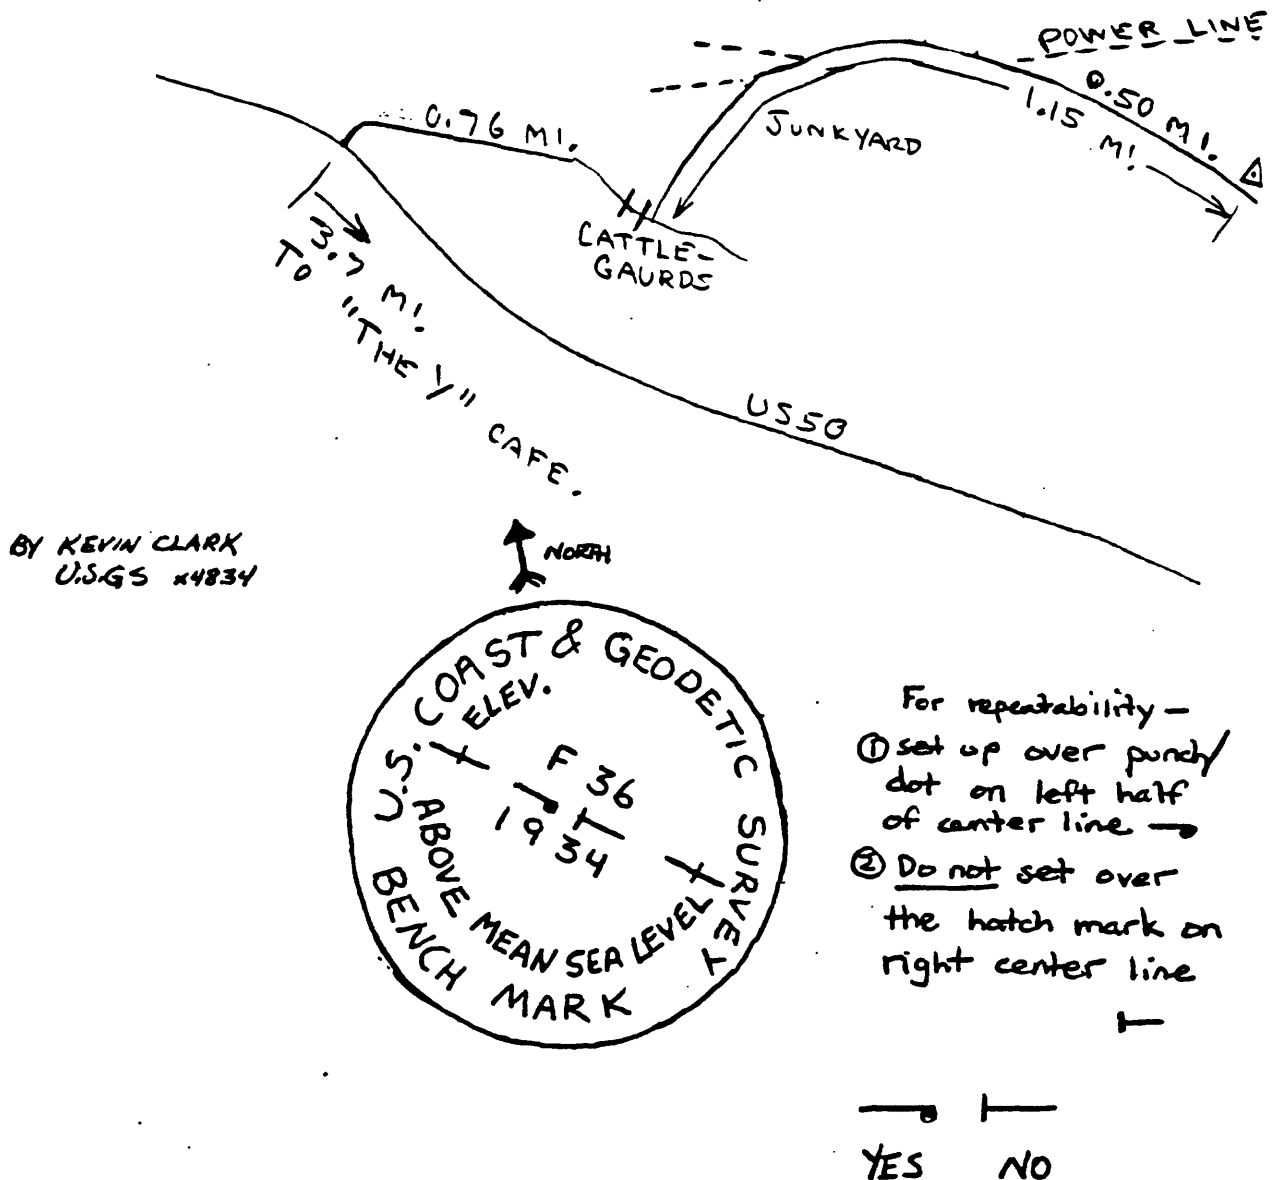 POWER LINE
0.50 MI.
1.15 MI
0.76 MI.
JUNKYARD
CATTLE-
GAURDS
3.7 MI.
TO "THE Y" CAFE.
US50
BY KEVIN CLARK
U.S.G.S x4834
NORTH
U.S. COAST & GEODETIC SURVEY
ELEV.
F 36
1934
ABOVE MEAN SEA LEVEL
BENCH MARK
For repeatability –
① set up over punch/
dot on left half
of center line
② Do not set over
the hatch mark on
right center line
YES NO